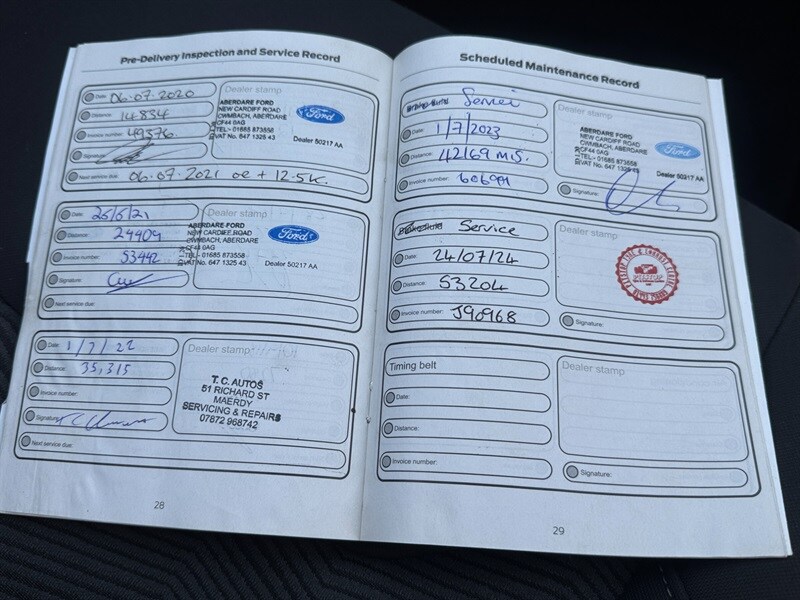 Pre-Delivery Inspection and Service Record
Date: 06.07.2020
Distance: 14834
Invoice number: 49376
Signature:
Next service due: 06.07.2021 oe + 12.5k.
Dealer stamp
ABERDARE FORD
NEW CARDIFF ROAD
CWMBACH, ABERDARE
CF44 0AG
TEL:- 01685 873558
VAT No. 647 1325 43
Ford
Dealer 50217 AA
Date:
Distance: 24409
Invoice number: 53442
Signature:
Next service due:
Dealer stamp
ABERDARE FORD
NEW CARDIFF ROAD
CWMBACH, ABERDARE
CF44 0AG
TEL:- 01685 873558
VAT No. 647 1325 43
Ford
Dealer 50217 AA
Date: 1/7/22
Distance: 35,315
Invoice number:
Signature:
Next service due:
Dealer stamp
T. C. AUTOS
51 RICHARD ST
MAERDY
SERVICING & REPAIRS
07872 968742
28
Scheduled Maintenance Record
Service
Date: 1/7/2023
Distance: 42169 MLS.
Invoice number:
Dealer stamp
ABERDARE FORD
NEW CARDIFF ROAD
CWMBACH, ABERDARE
CF44 0AG
TEL:- 01685 873558
VAT No. 647 1325 43
Ford
Dealer 50217 AA
Signature:
Service
Date: 24/07/24
Distance: 53204
Invoice number: J90968
Dealer stamp
Signature:
Timing belt
Date:
Distance:
Invoice number:
Dealer stamp
Signature:
29